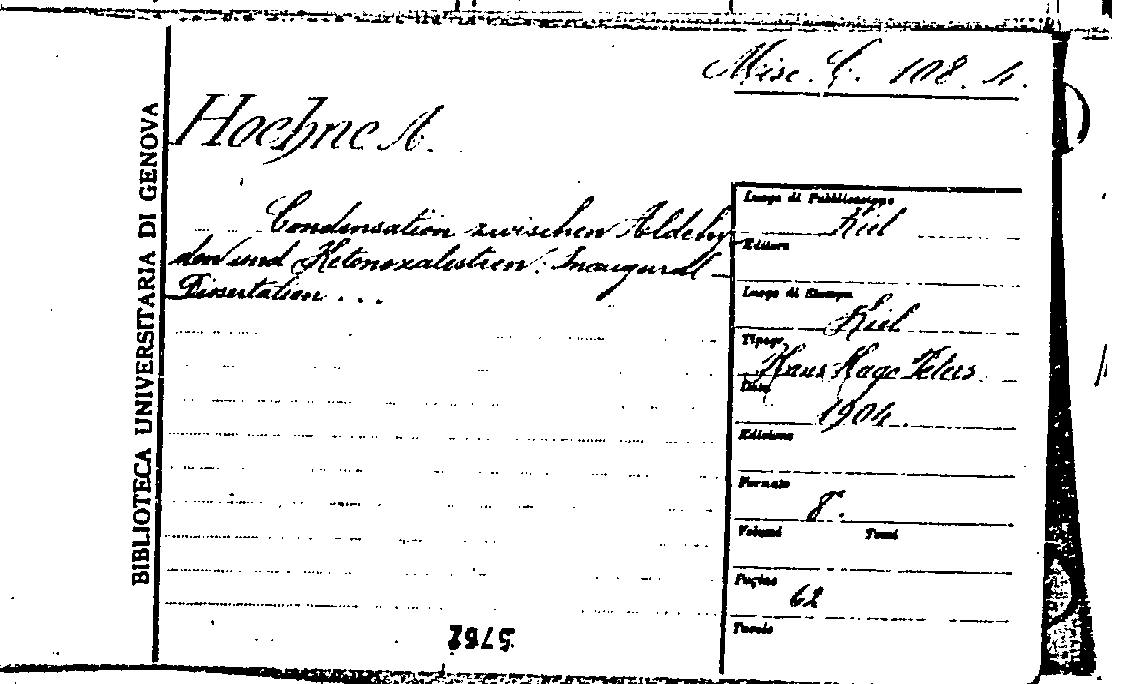 Misc. G. 108. 4.
BIBLIOTECA UNIVERSITARIA DI GENOVA
Hoehne A.
Condensation zwischen Aldehy
den und Ketonoxalestern. Inaugural
Dissertation . . .
Luogo di Pubblicazione
Kiel
Editore
Luogo di Stampa
Kiel
Tipogr.
Hans Hago Peters
Data
1904.
Edizione
Formato
8°.
Volumi Tomi
Pagine
62
Tavole
5762